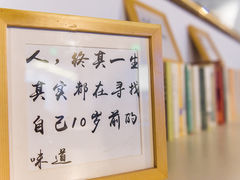 人，终其一生
其实都在寻找
自己10岁前的
味道